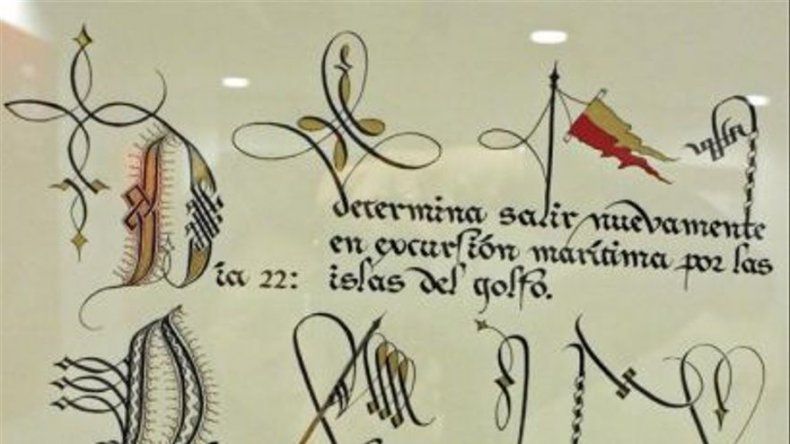 Día 22:
determina salir nuevamente
en excursión marítima por las
islas del golfo.